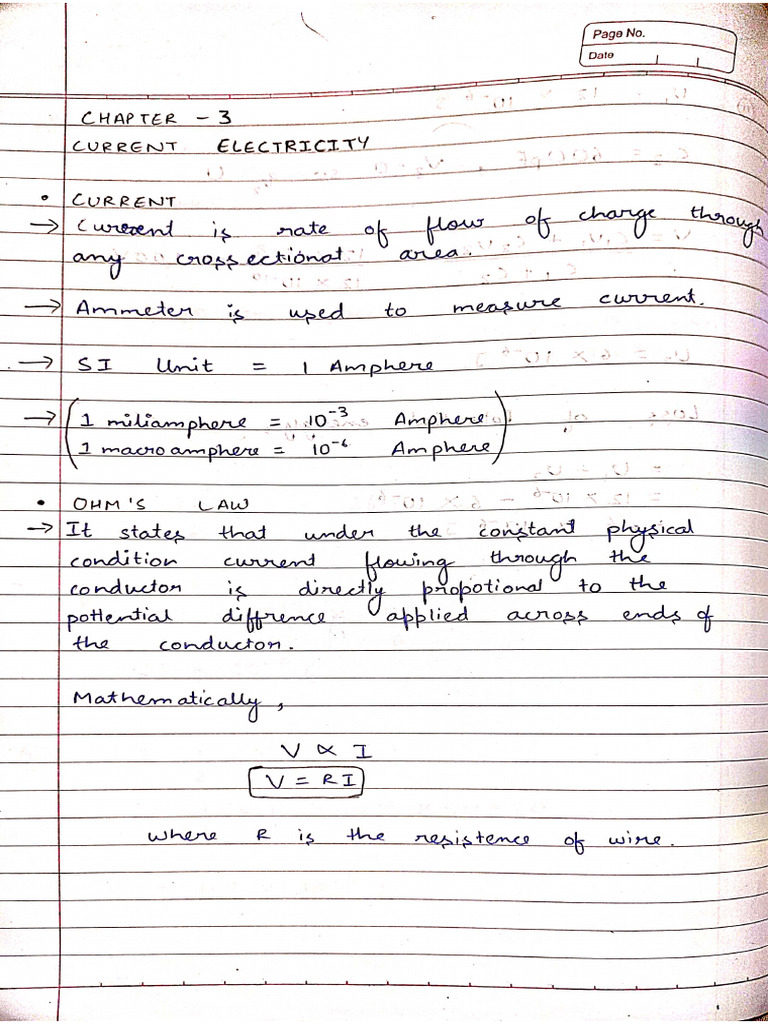 Page No.
Date
CHAPTER - 3
CURRENT ELECTRICITY
• CURRENT
→ Current is rate of flow of charge through
any crossectional area.
→ Ammeter is used to measure current.
→ SI Unit = 1 Amphere
→ (1 miliamphere = 10⁻³ Amphere
1 macroamphere = 10⁻⁶ Amphere)
• OHM'S LAW
→ It states that under the constant physical
condition current flowing through the
conductor is directly propotional to the
pottential diffrence applied across ends of
the conductor.
Mathematically,
V ∝ I
V = RI
where R is the resistence of wire.